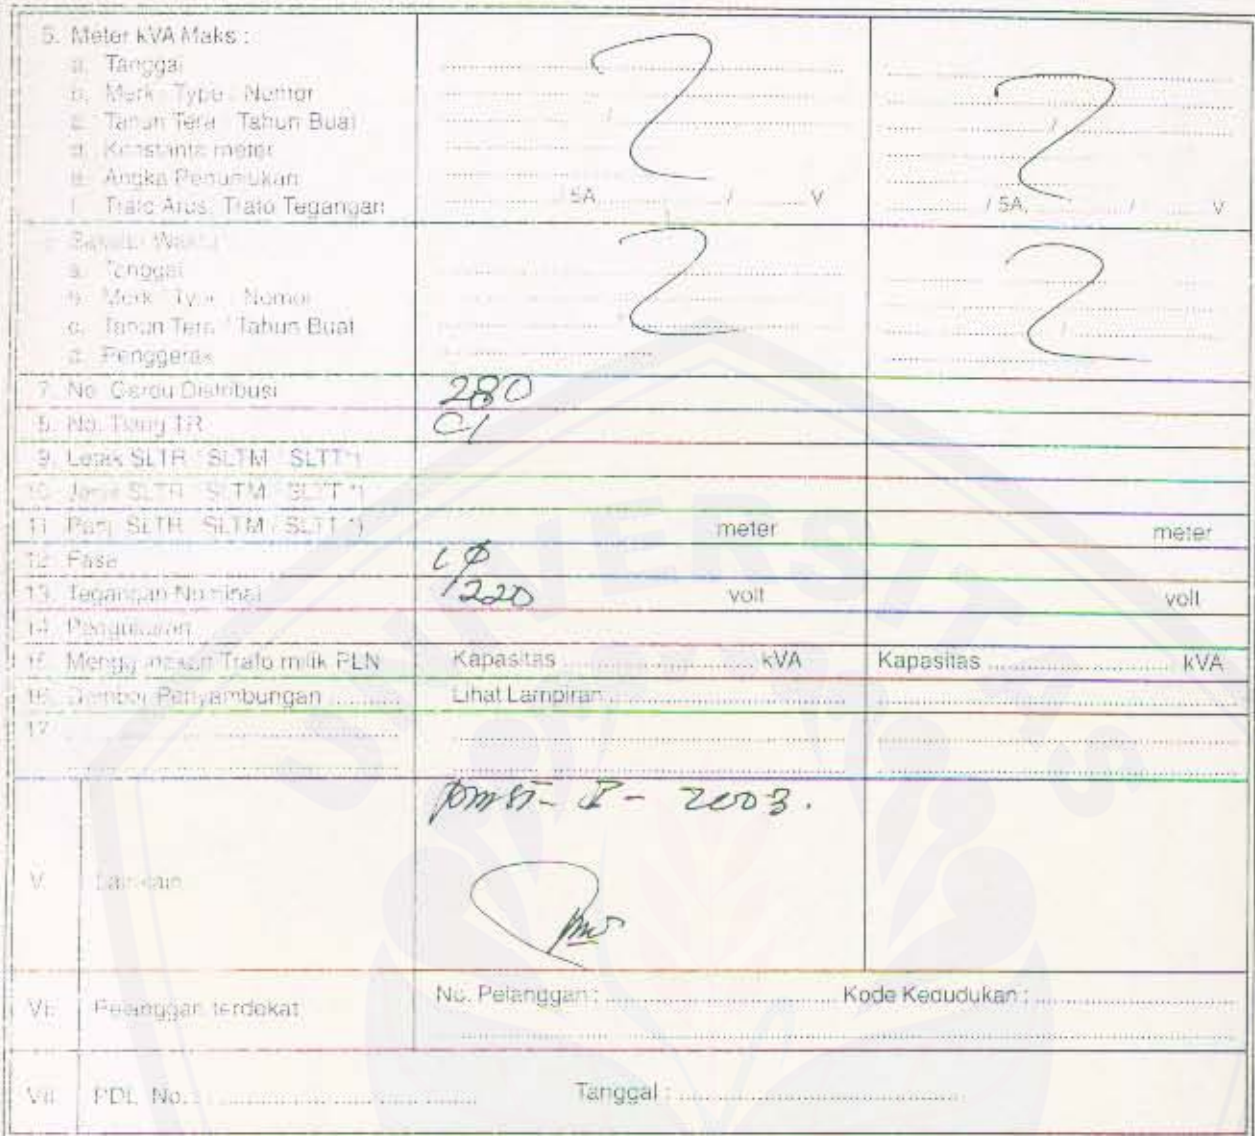 5. Meter kVA Maks :
a. Tanggal
b. Merk / Type / Nomor
c. Tahun Tera / Tahun Buat /
d. Konstanta meter
e. Angka Penunjukan
f. Trafo Arus, Trafo Tegangan / 5A / V / 5A, / V
Waktu
a. Tanggal
b. Merk / Type / Nomor
c. Tahun Tera / Tahun Buat /
d. Penggerak
7. No. Gardu Distribusi 280
8. No. Tiang TR C1
9. Letak SLTR / SLTM / SLTT *)
10. Jenis SLTR / SLTM / SLTT *)
11. Panj. SLTR / SLTM / SLTT *) meter meter
12. Fasa 1φ
13. Tegangan Nominal 220 volt volt
14. Pengukuran
15. Menggunakan Trafo milik PLN Kapasitas kVA Kapasitas kVA
16. Penyambungan Lihat Lampiran
17.
2003.
V. Lain-lain
VI. Pelanggan terdekat No. Pelanggan : Kode Kedudukan :
VII. PDL No. : Tanggal :